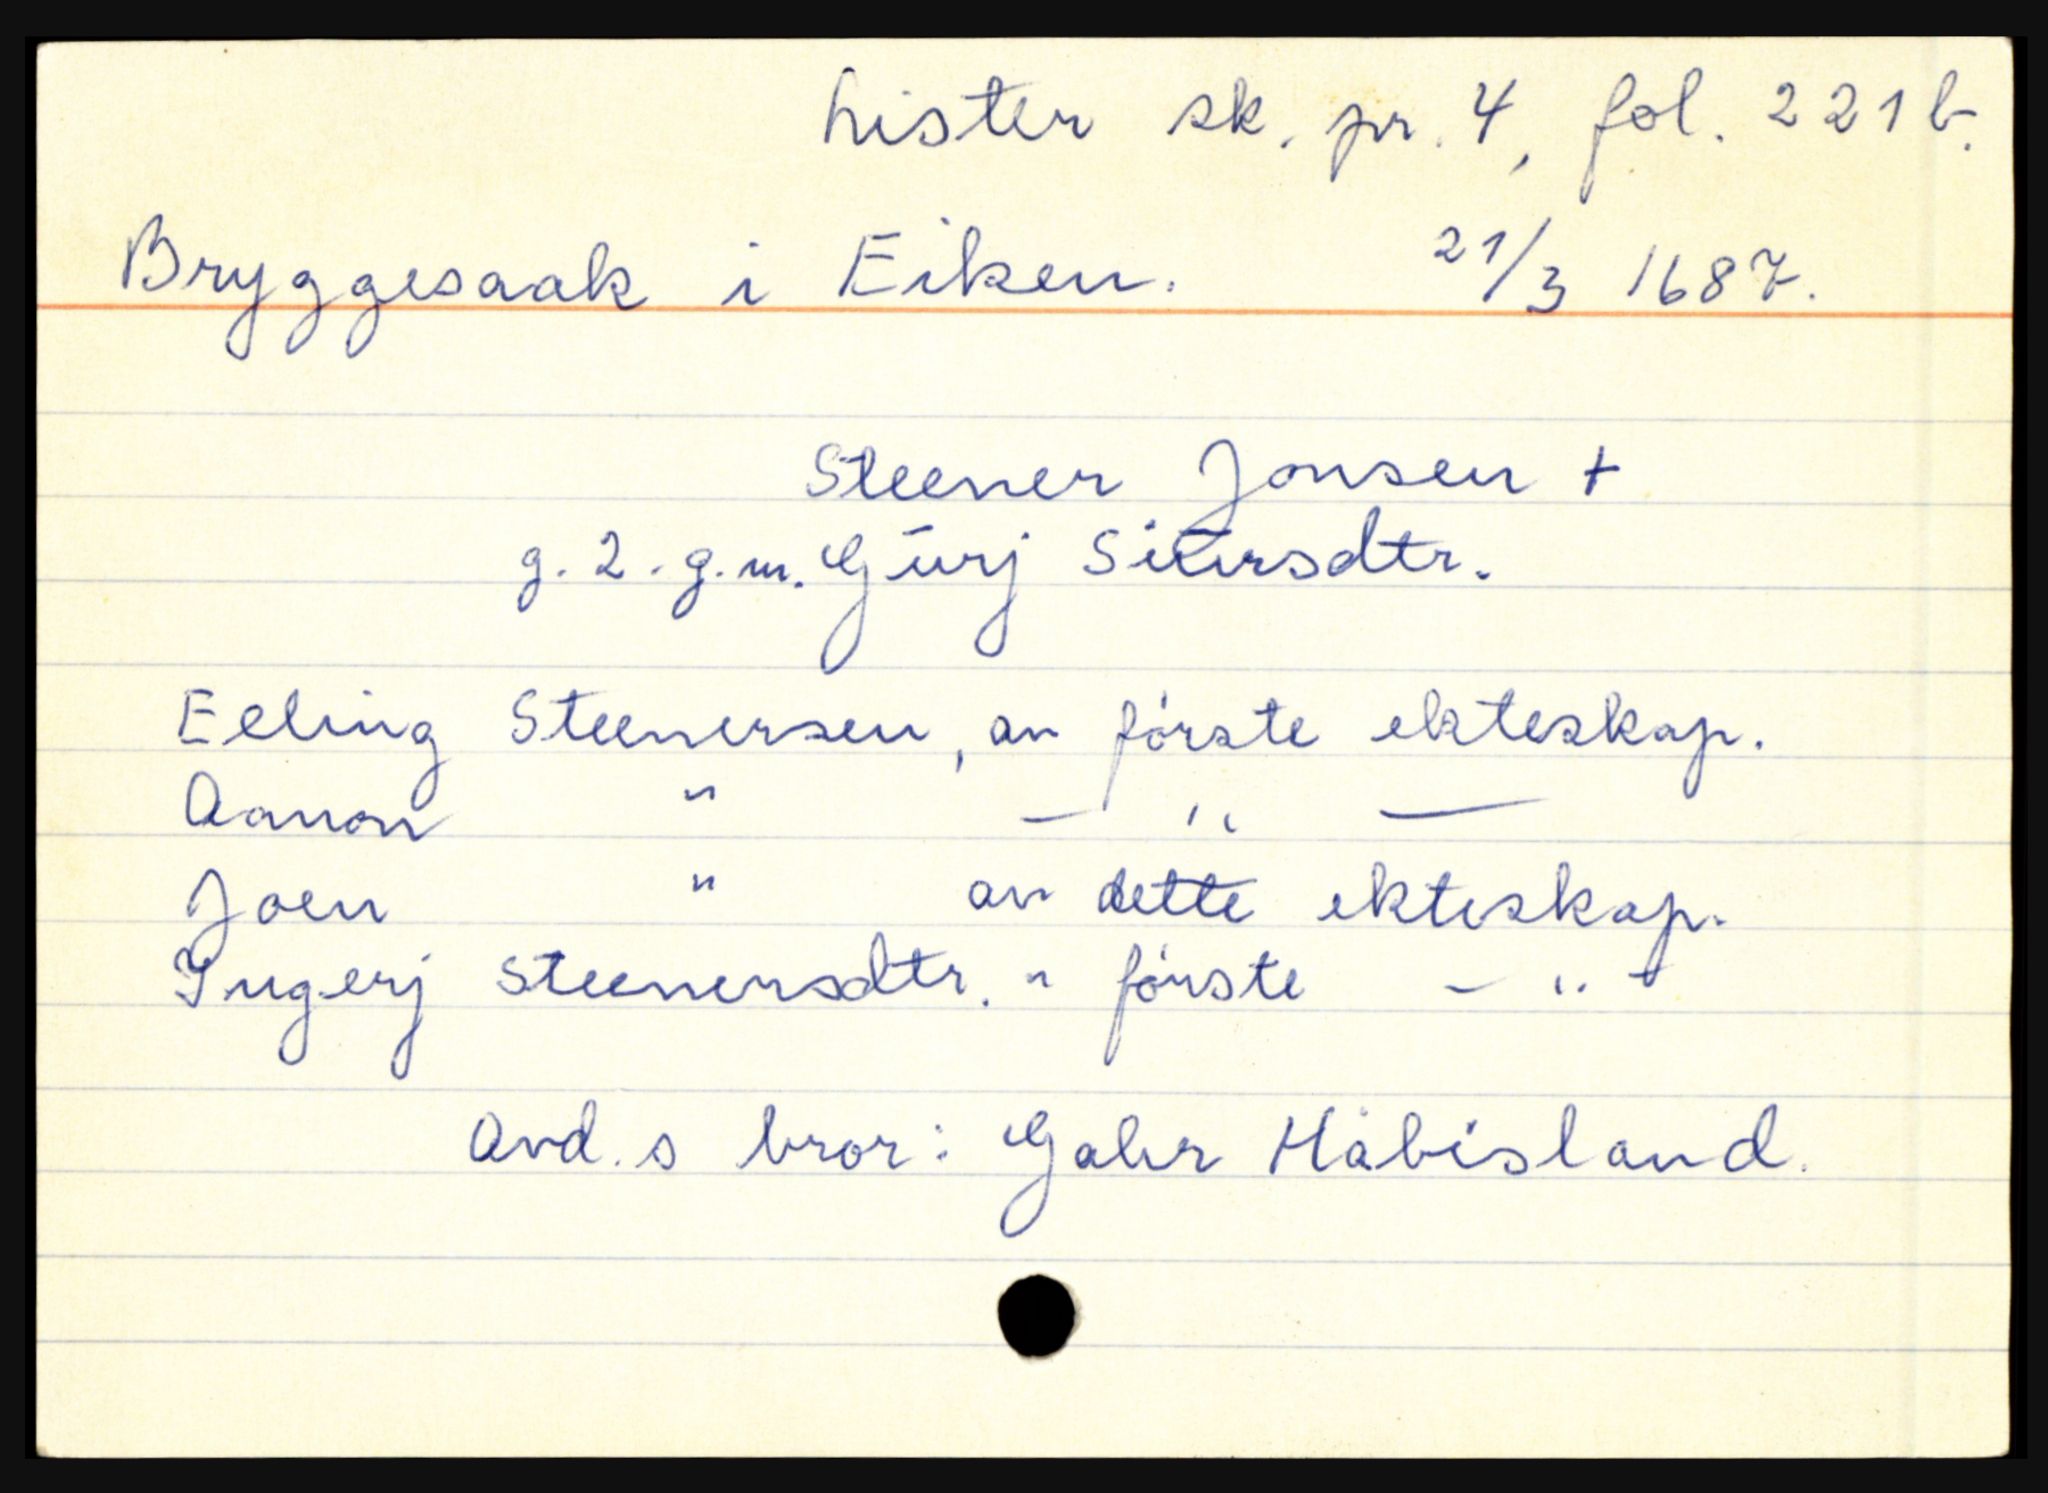 Lister sk. pr. 4, fol. 221b.
Bryggesaak i Eiken. 21/3 1687.
Steener Jonsen +
g. 2. g. m. Gūrj Siūrsdtr.
Elling Steenersen, av første ekteskap.
Aanon " — " —
Joen " av dette ekteskap.
Ingerj Steenersdtr. " første - " -
Avd. s bror: Gahr Håbisland.